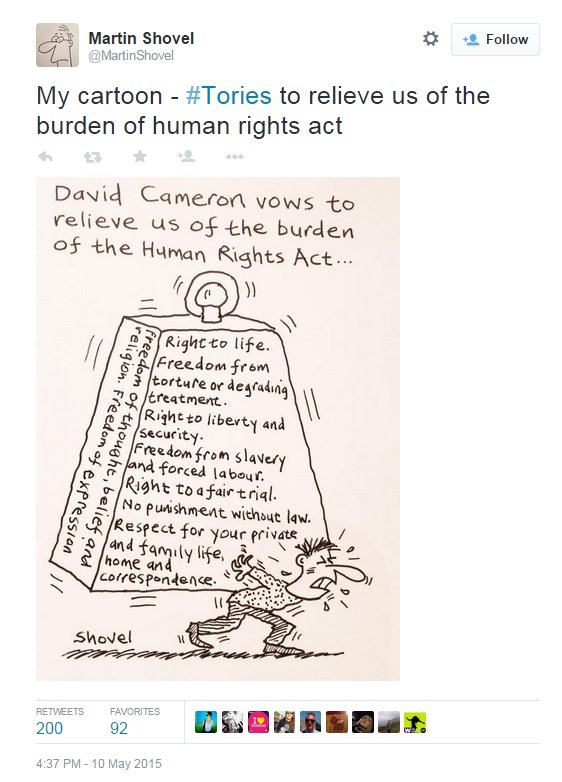 Martin Shovel
@MartinShovel
Follow
My cartoon - #Tories to relieve us of the
burden of human rights act
David Cameron vows to
relieve us of the burden
of the Human Rights Act...
Right to life.
Freedom from
torture or degrading
treatment.
Right to liberty and
security.
Freedom from slavery
and forced labour.
Right to a fair trial.
No punishment without law.
Respect for your private
and family life,
home and
correspondence.
Freedom of thought, belief and
religion. Freedom of expression
Shovel
RETWEETS
200
FAVORITES
92
4:37 PM - 10 May 2015